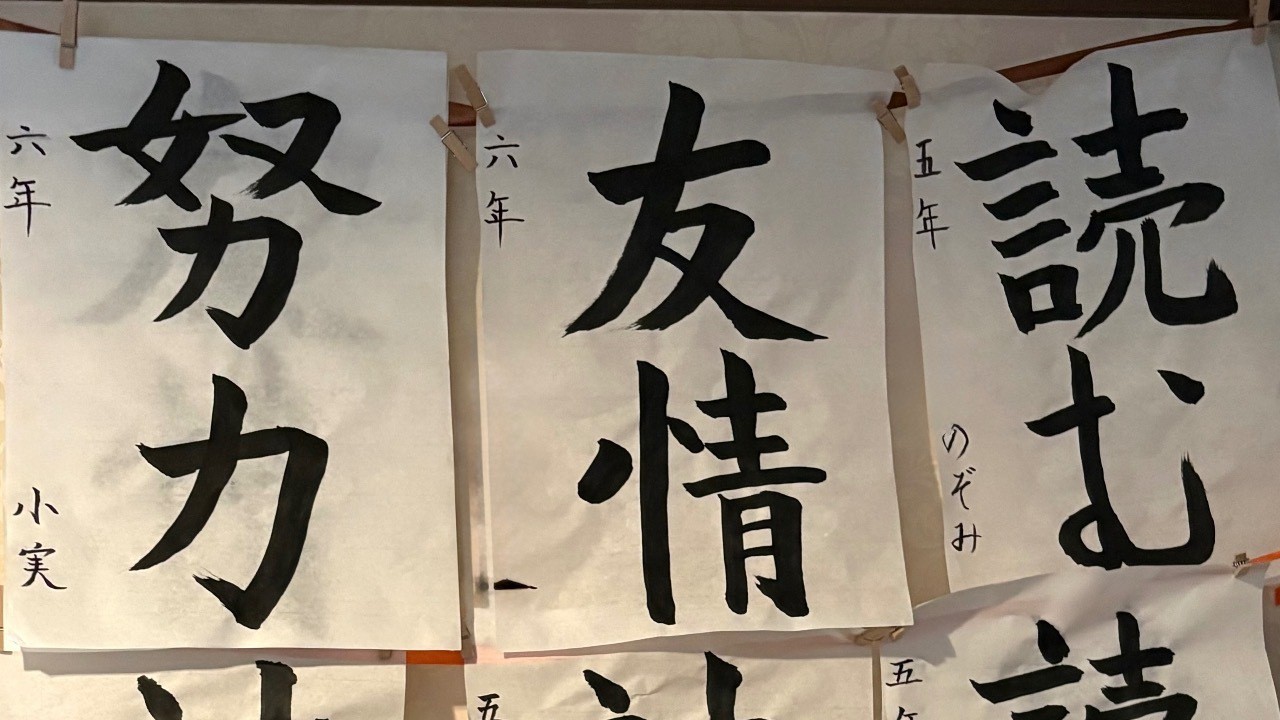 努力
六年
小実
友情
六年
読む
五年
のぞみ
五
読
五年